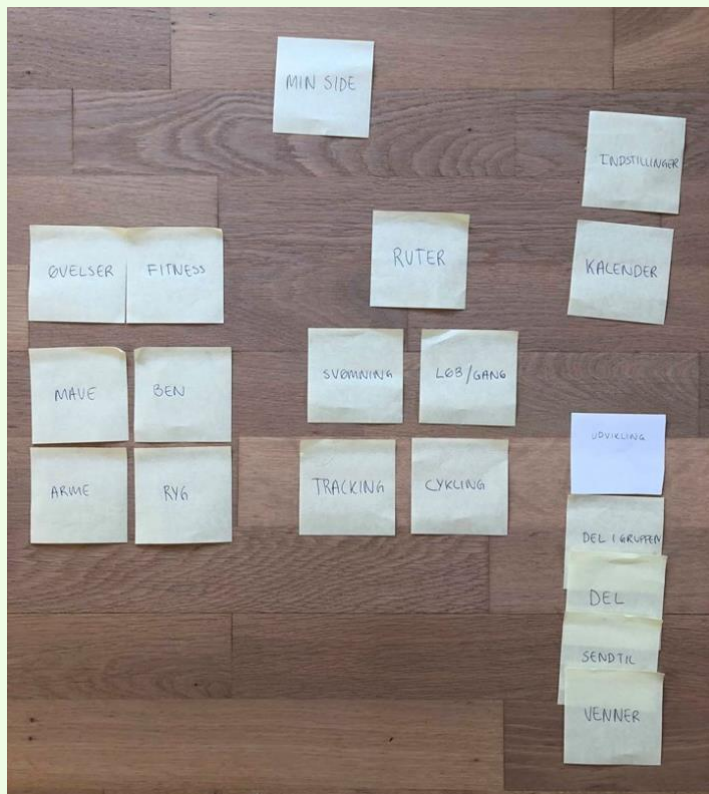 MIN SIDE
INDSTILLINGER
ØVELSER
FITNESS
RUTER
KALENDER
MAVE
BEN
SVØMNING
LØB/GANG
ARME
RYG
TRACKING
CYKLING
UDVIKLING
DEL I GRUPPEN
DEL
SEND TIL
VENNER